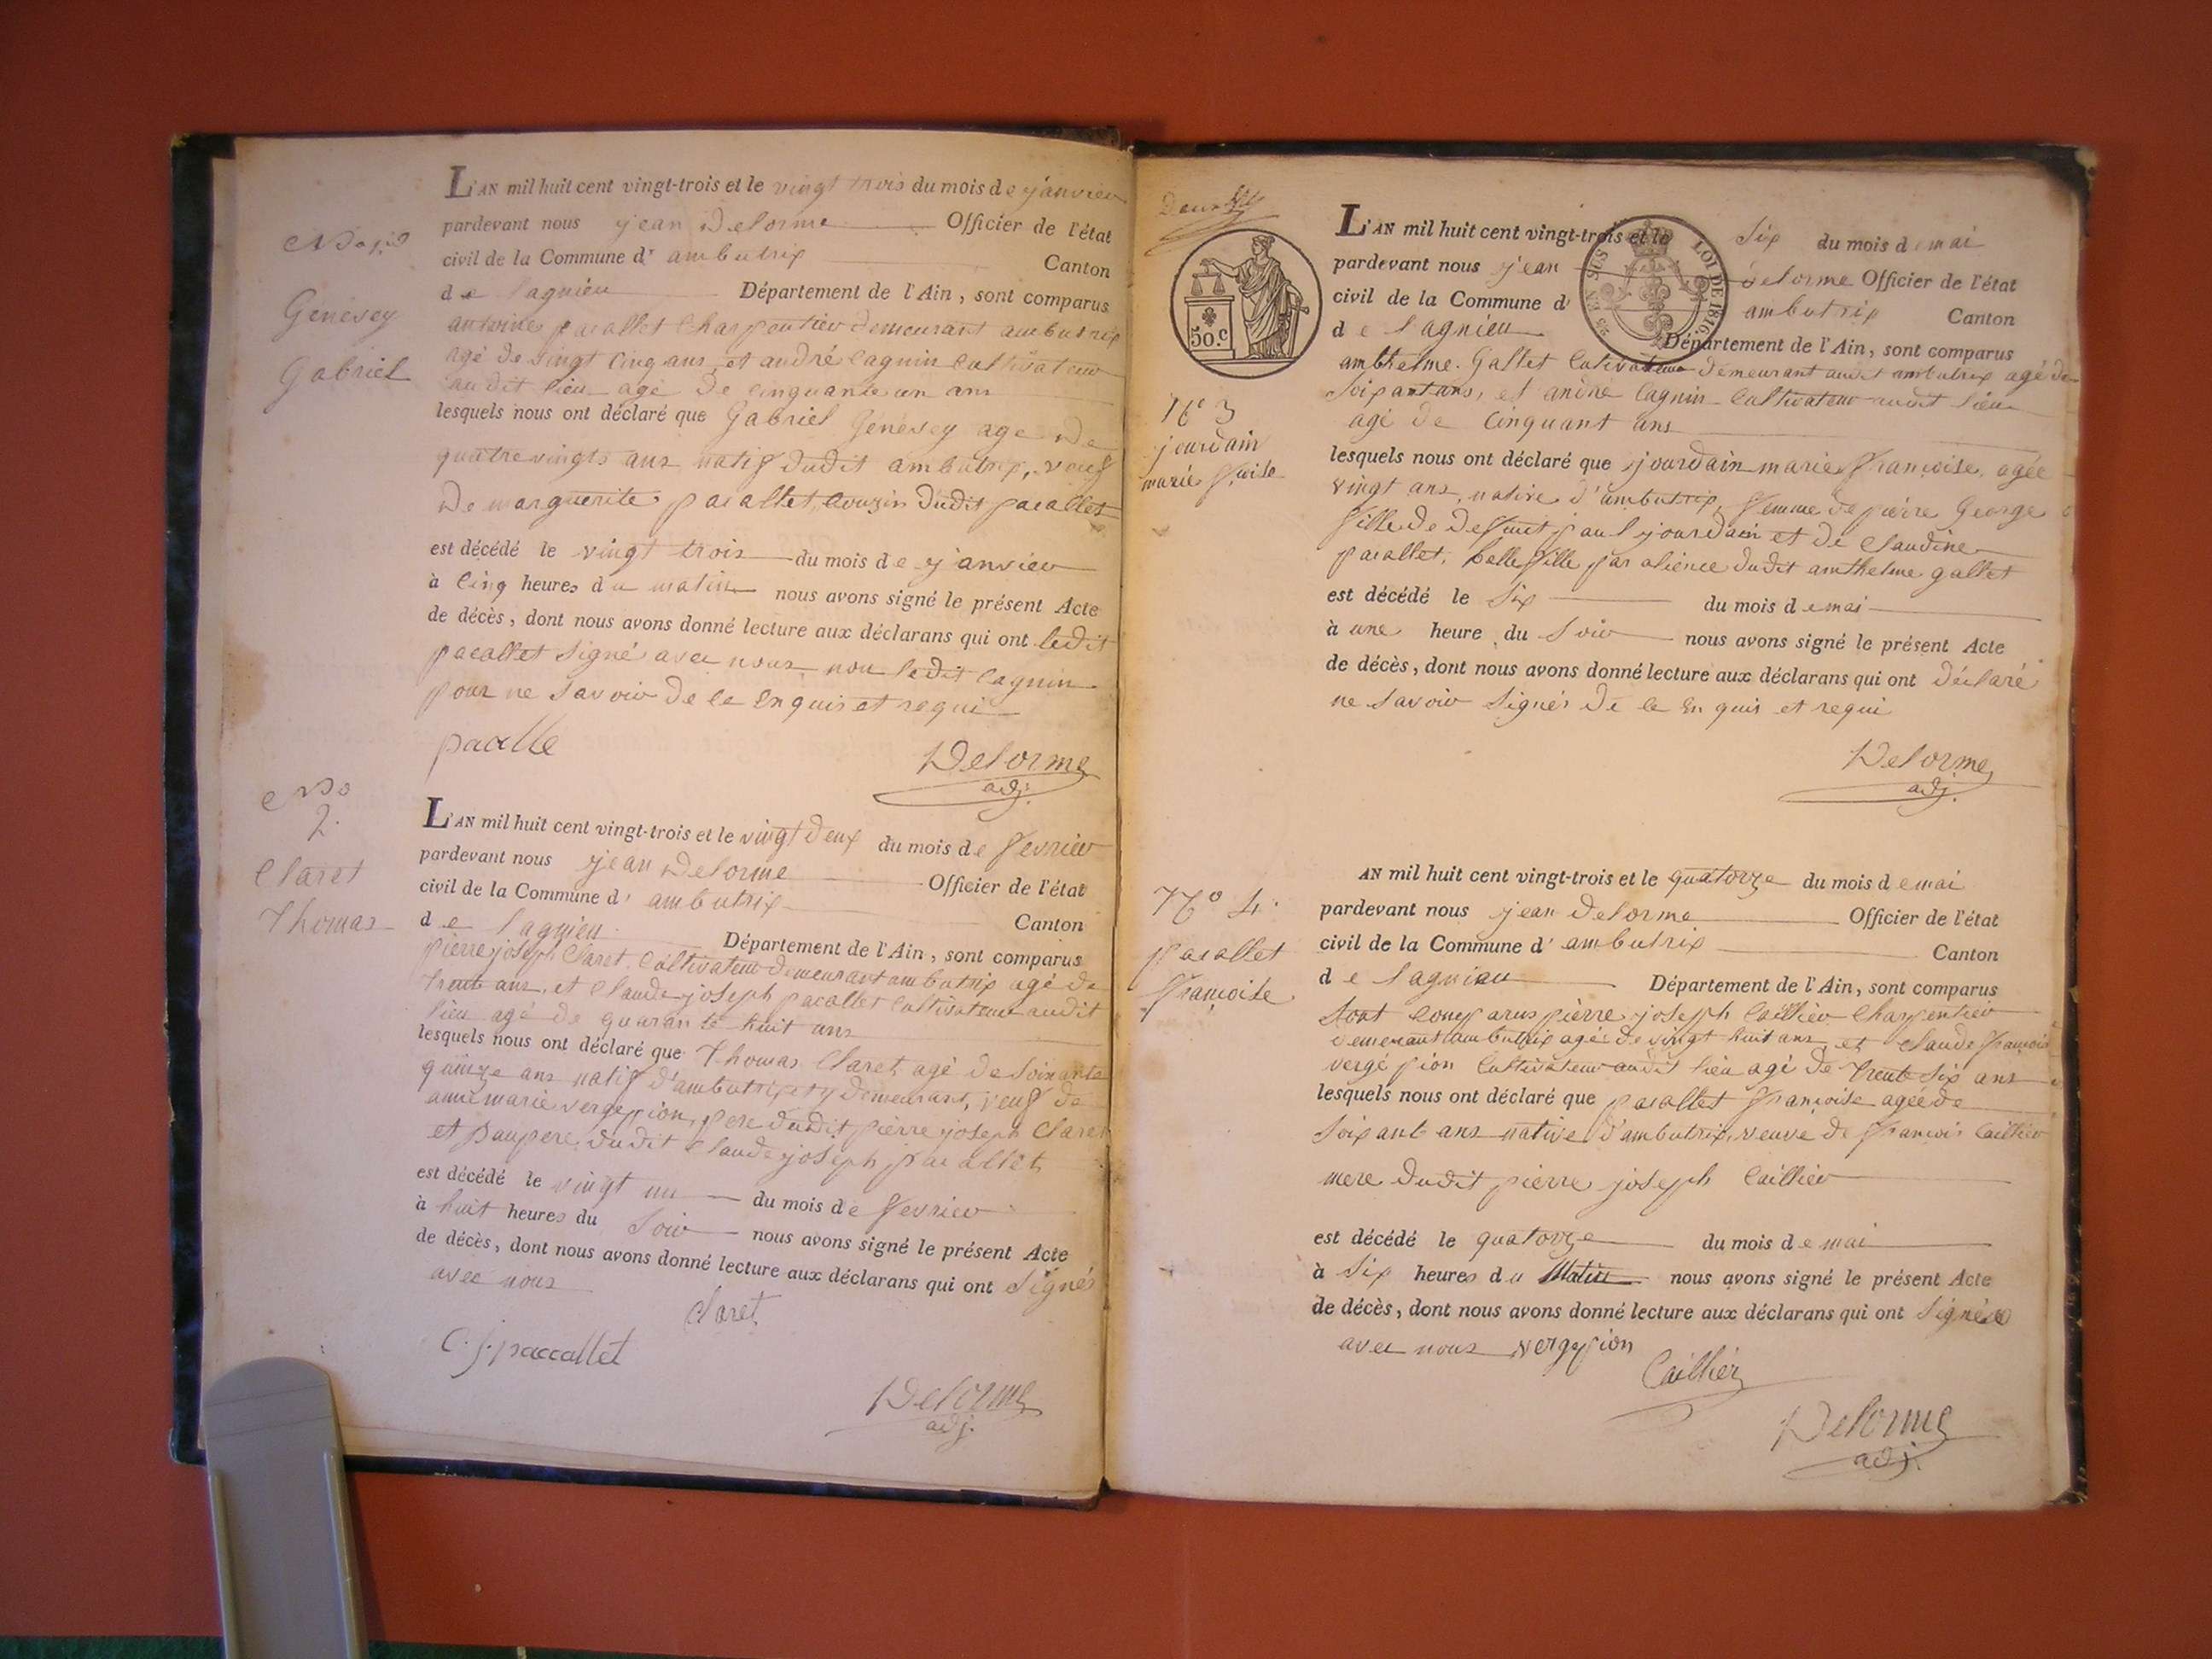 No 1er
Genevey
Gabriel
L'AN mil huit cent vingt-trois et le vingt trois du mois de janvier
pardevant nous jean Delorme Officier de l'état
civil de la Commune d' ambutrix Canton
de lagnieu Département de l'Ain, sont comparus
antoine pacallet Charpentier demeurant ambutrix
agé de vingt cinq ans, et andré Cagnin Cultivateur
audit lieu agé de cinquante un ans
lesquels nous ont déclaré que Gabriel Genevey age de
quatrevingts ans natif dudit ambutrix, veuf
de marguerite pacallet, Couzin dudit pacallet
est décédé le vingt trois du mois de janvier
à Cinq heures du matin nous avons signé le présent Acte
de décès, dont nous avons donné lecture aux déclarans qui ont ledit
pacallet Signé avec nous non ledit Cagnin
pour ne Savoir de ce Enquis et requi
pacalle
Delorme
adj.
No
2.
Claret
Thomas
L'AN mil huit cent vingt-trois et le vingt deux du mois de fevrier
pardevant nous jean Delorme Officier de l'état
civil de la Commune d' ambutrix Canton
de lagnieu Département de l'Ain, sont comparus
pierre joseph Claret Cultivateur demeurant ambutrix agé de
trente ans, et Claude joseph pacallet Cultivateur audit
lieu agé de quarante huit ans
lesquels nous ont déclaré que Thomas Claret agé de Soixante
quinze ans natif d'ambutrix et y demeurant, veuf de
anne marie vergepion, pere dudit pierre joseph Claret
et paupere dudit Claude joseph pacallet
est décédé le vingt un du mois de fevrier
à huit heures du Soir nous avons signé le présent Acte
de décès, dont nous avons donné lecture aux déclarans qui ont Signés
avec nous
Claret
C. j. paccallet
Delorme
adj.
50.c
SUS LOI DE 1816.
No 3
jourdain
marie fçoise
L'AN mil huit cent vingt-trois et le Six du mois de mai
pardevant nous jean Delorme Officier de l'état
civil de la Commune d' ambutrix Canton
de lagnieu Département de l'Ain, sont comparus
amthelme Gallet Cultivateur demeurant audit ambutrix agé de
Soixant ans, et andré Cagnin Cultivateur audit lieu
agé de Cinquant ans
lesquels nous ont déclaré que jourdain marie françoise, agée
vingt ans, native d'ambutrix, femme de pierre George
fille de deffunt paul jourdain et de Claudine
pacallet, belle fille par alience dudit amthelme gallet
est décédé le Six du mois de mai
à une heure du Soir nous avons signé le présent Acte
de décès, dont nous avons donné lecture aux déclarans qui ont déclaré
ne Savoir Signés de ce Enquis et requi
Delorme
adj.
No 4.
pacallet
françoise
AN mil huit cent vingt-trois et le quatorze du mois de mai
pardevant nous jean Delorme Officier de l'état
civil de la Commune d' ambutrix Canton
de lagnieu Département de l'Ain, sont comparus
Sont Comparus pierre joseph Caillier Charpentier
demeurant ambutrix agé de vingt huit ans, et Claude françois
vergé pion Cultivateur audit lieu agé de trente Six ans
lesquels nous ont déclaré que pacallet françoise agée de
Soixant ans native d'ambutrix, veuve de françois Caillier
mere dudit pierre joseph Caillier
est décédé le quatorze du mois de mai
à Six heures du Matin nous avons signé le présent Acte
de décès, dont nous avons donné lecture aux déclarans qui ont Signés
avec nous vergepion
Caillier
Delorme
adj.